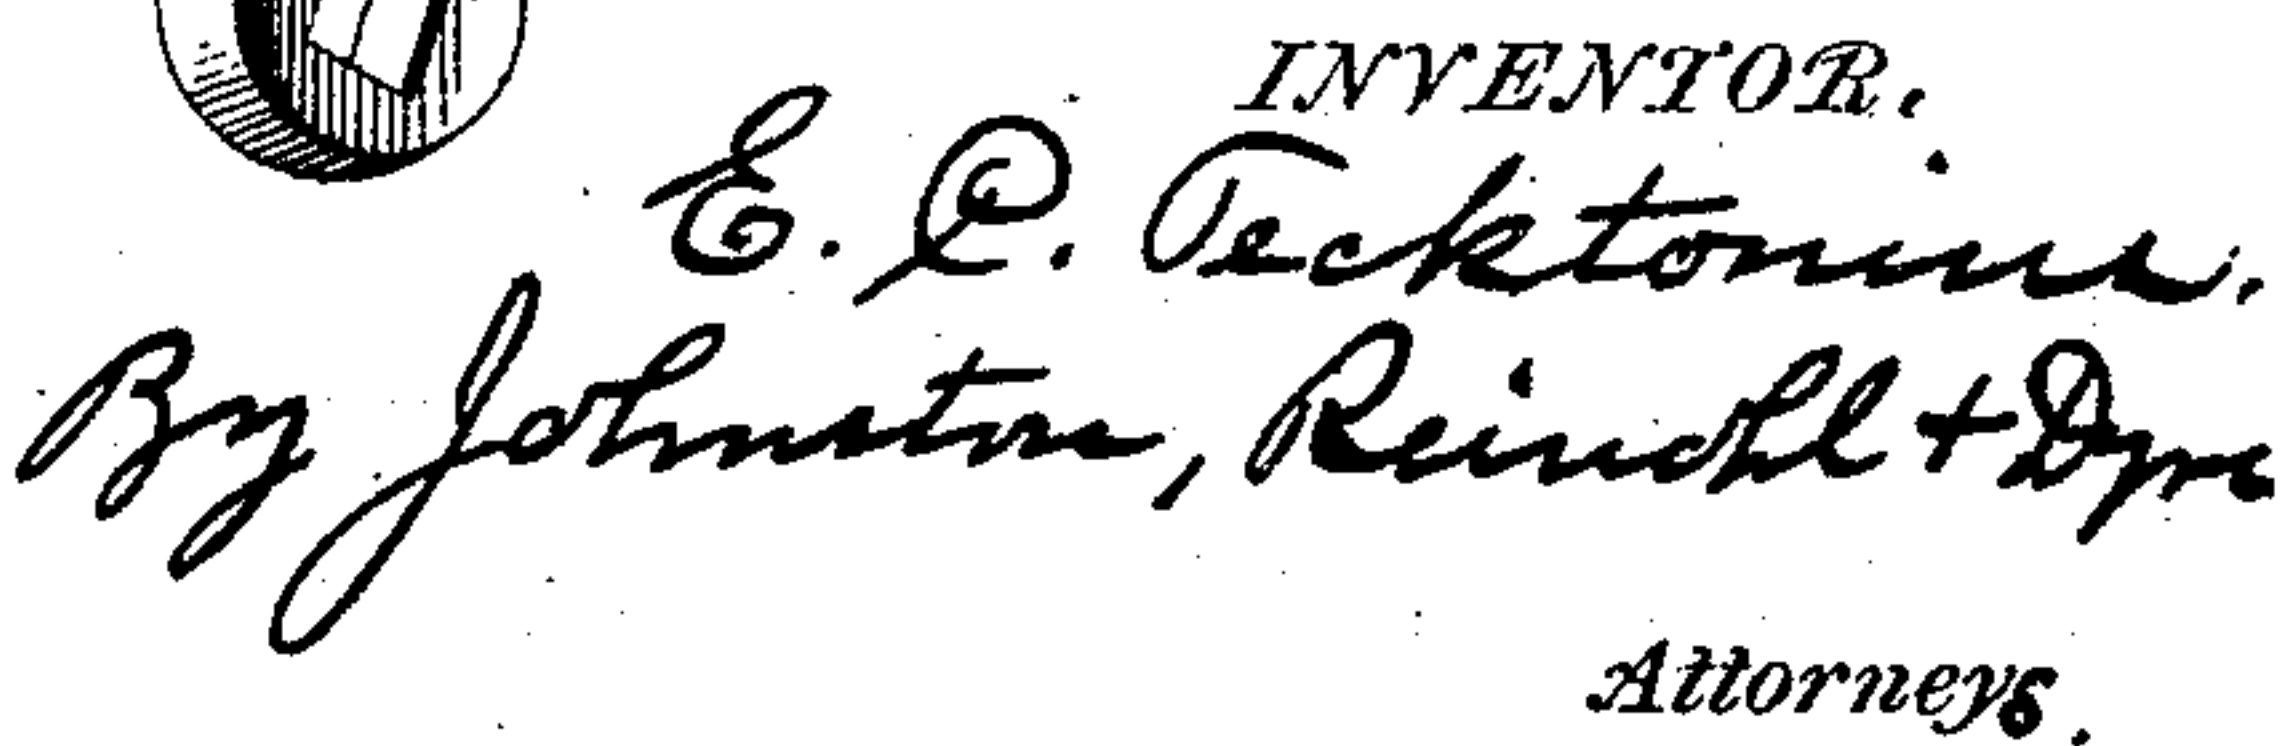 INVENTOR.
E. C. Tecktonius.
By Johnston, Reindhl + Dyre
Attorneys.